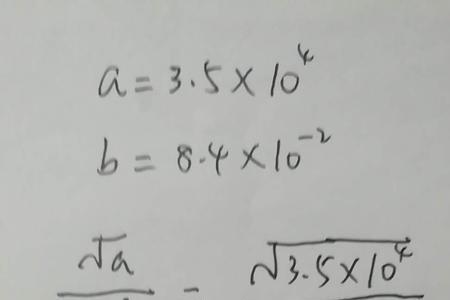 a = 3.5 × 10⁴
b = 8.4 × 10⁻²
√a = √3.5 × 10⁴